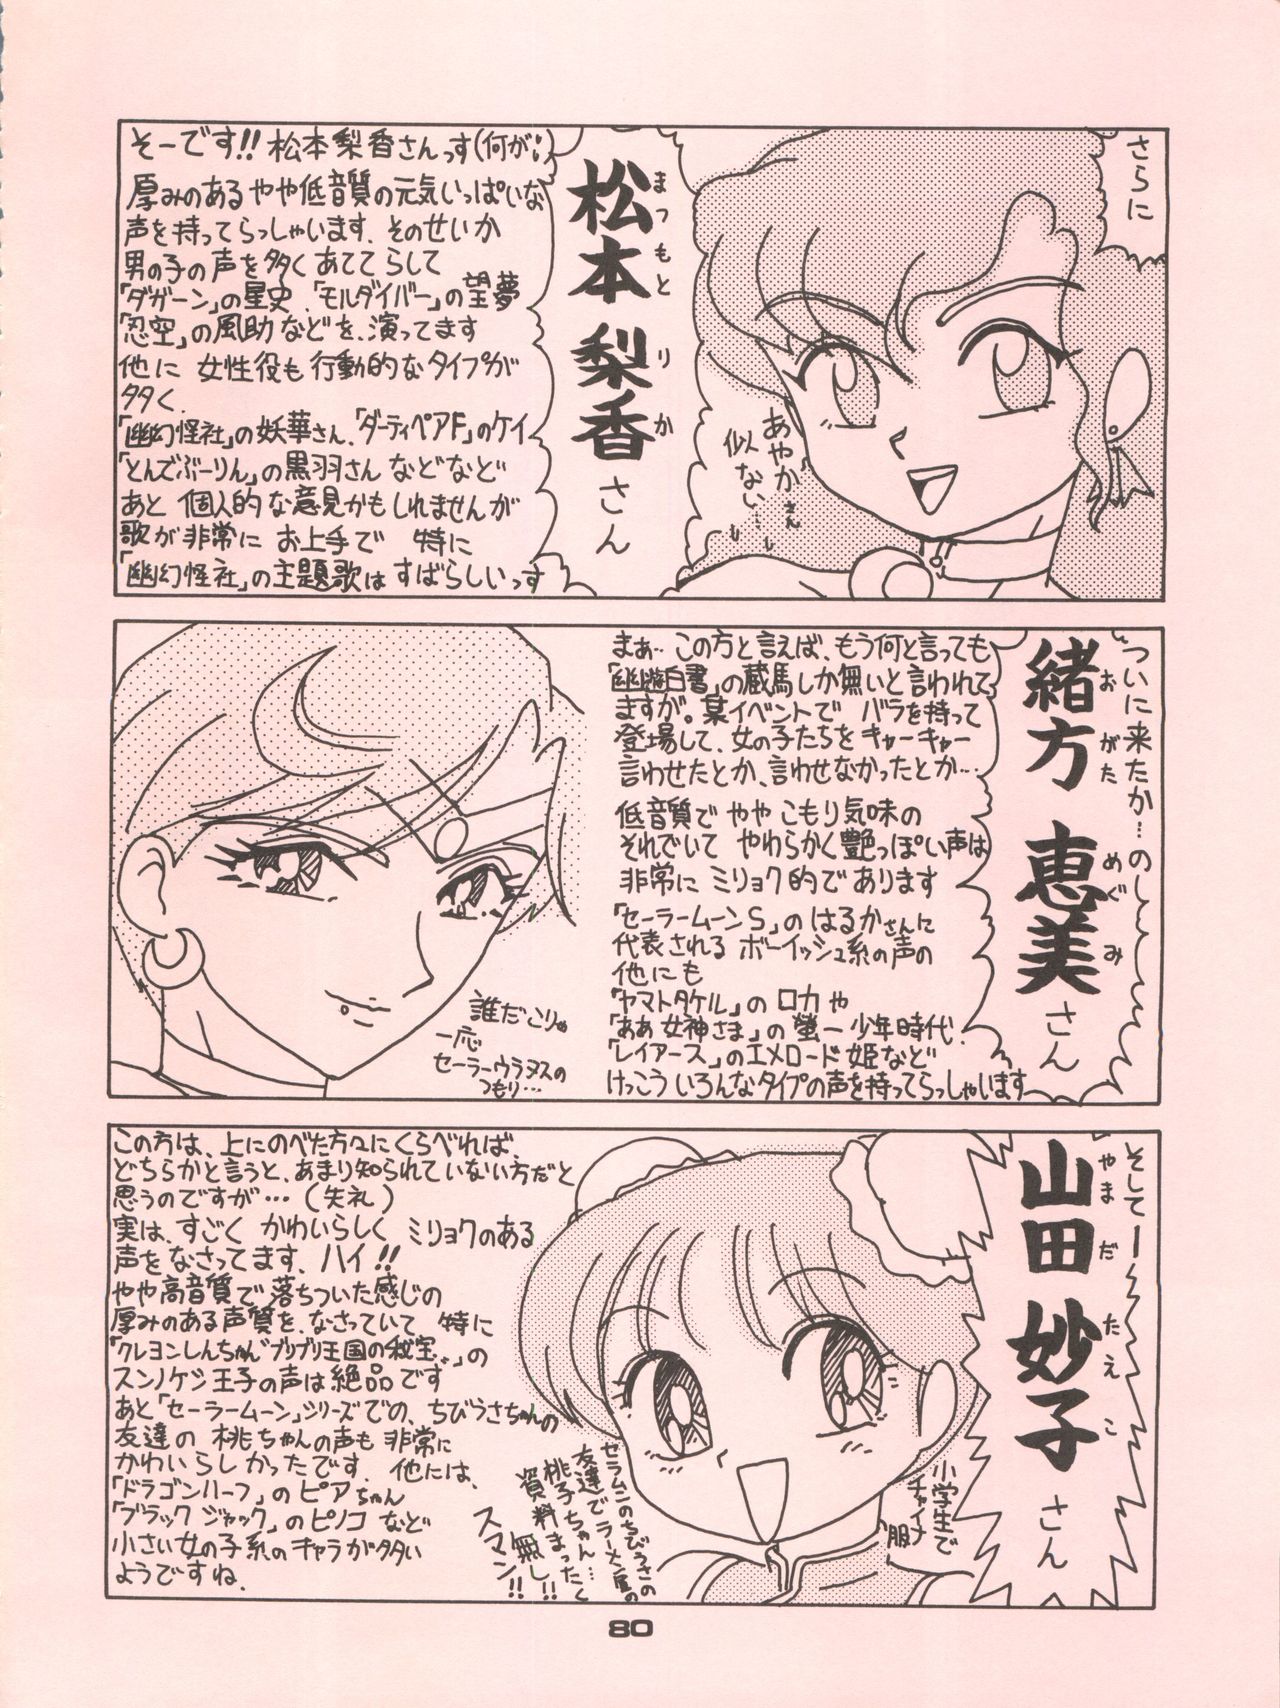 さらに
松本 梨香さん
まつもと りか
そーです!! 松本梨香さんっす(何が!)
厚みのある やや低音質の元気いっぱいな
声を持ってらっしゃいます、そのせいか
男の子の声を多くあててらして
「ダガーン」の星史、「モルダイバー」の望夢
「忍空」の風助などを、演ってます
他に 女性役も行動的なタイプが
多く、
「幽幻怪社」の妖華さん、「ダーティペアF」のケイ
「とんでぶーりん」の黒羽さん などなど
あと 個人的な意見かもしれませんが
歌が非常に お上手で 特に
「幽幻怪社」の主題歌は すばらしいっす
あやかさん
似てない…
ついに来たか…のし
緒方 恵美さん
おがた めぐみ
まぁ… この方と言えば、もう何と言っても
「幽遊白書」の蔵馬しか無いと言われて
ますが。某イベントで バラを持って
登場して、女の子たちを キャーキャー
言わせたとか、言わせなかったとか…
低音質で やや こもり気味の
それでいて やわらかく艶っぽい声は
非常に ミリョク的であります
「セーラームーンS」の はるかさんに
代表される ボーイッシュ系の声の
他にも
「ヤマトタケル」の ロカや
「ああ女神さま」の 螢一少年時代、
「レイアース」のエメロード姫など
けっこういろんなタイプの声を持ってらっしゃいます
誰だこりゃ
一応
セーラーウラヌスの
つもり…
そしてー
山田 妙子さん
やまだ たえこ
この方は、上にのべた方々にくらべれば、
どちらかと言うと、あまり知られていない方だと
思うのですが…(失礼)
実は、すごく かわいらしく ミリョクのある
声を なさってます、ハイ!!
やや高音質で落ちついた感じの
厚みのある声質を、なさっていて 特に
「クレヨンしんちゃん"ブリブリ王国の秘宝"」の
スンノケシ王子の声は絶品です
あと「セーラームーン」シリーズでの、ちびうさちゃんの
友達の 桃ちゃんの声も 非常に
かわいらしかったです、他には、
「ドラゴンハーフ」の ピアちゃん
「ブラックジャック」のピノコ など
小さい女の子系のキャラが多い
ようですね、
小学生で
チャイナ
服
セラムンのちびうさの
友達でラーメン屋の
桃子ちゃん…
資料まったく
無し!!
スマン!!
80